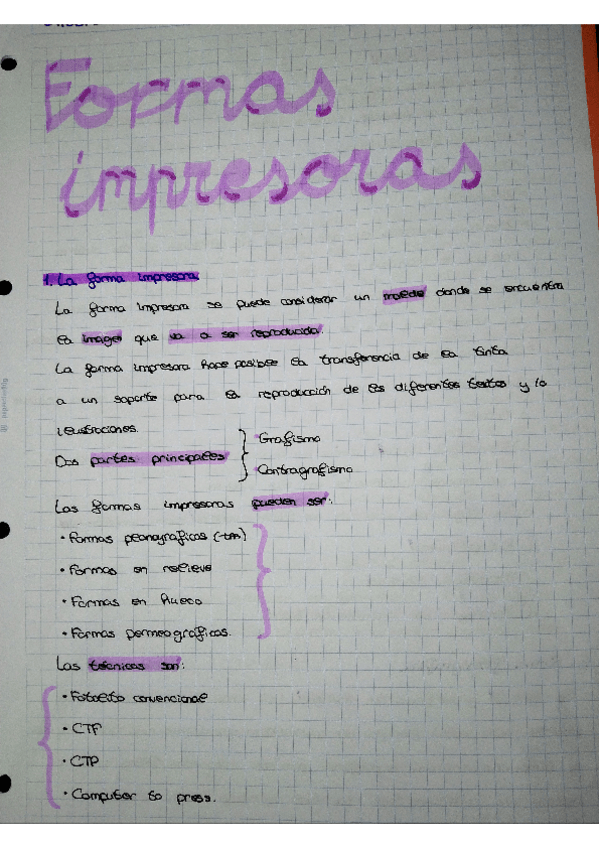 Formas
impresoras
1. La forma impresora
La forma impresora se puede considerar un molde donde se encuentra
la imagen que va a ser reproducida.
La forma impresora hace posible la transferencia de la tinta
a un soporte para la reproducción de los diferentes textos y la
ilustraciones.
Dos partes principales
Grafismo
Contragrafismo
Las formas impresoras pueden ser:
• Formas planográficas
• Formas en relieve
• Formas en hueco
• Formas permeográficas.
Las técnicas son:
• Fotolito convencional
• CTF
• CTP
• Computer to press.